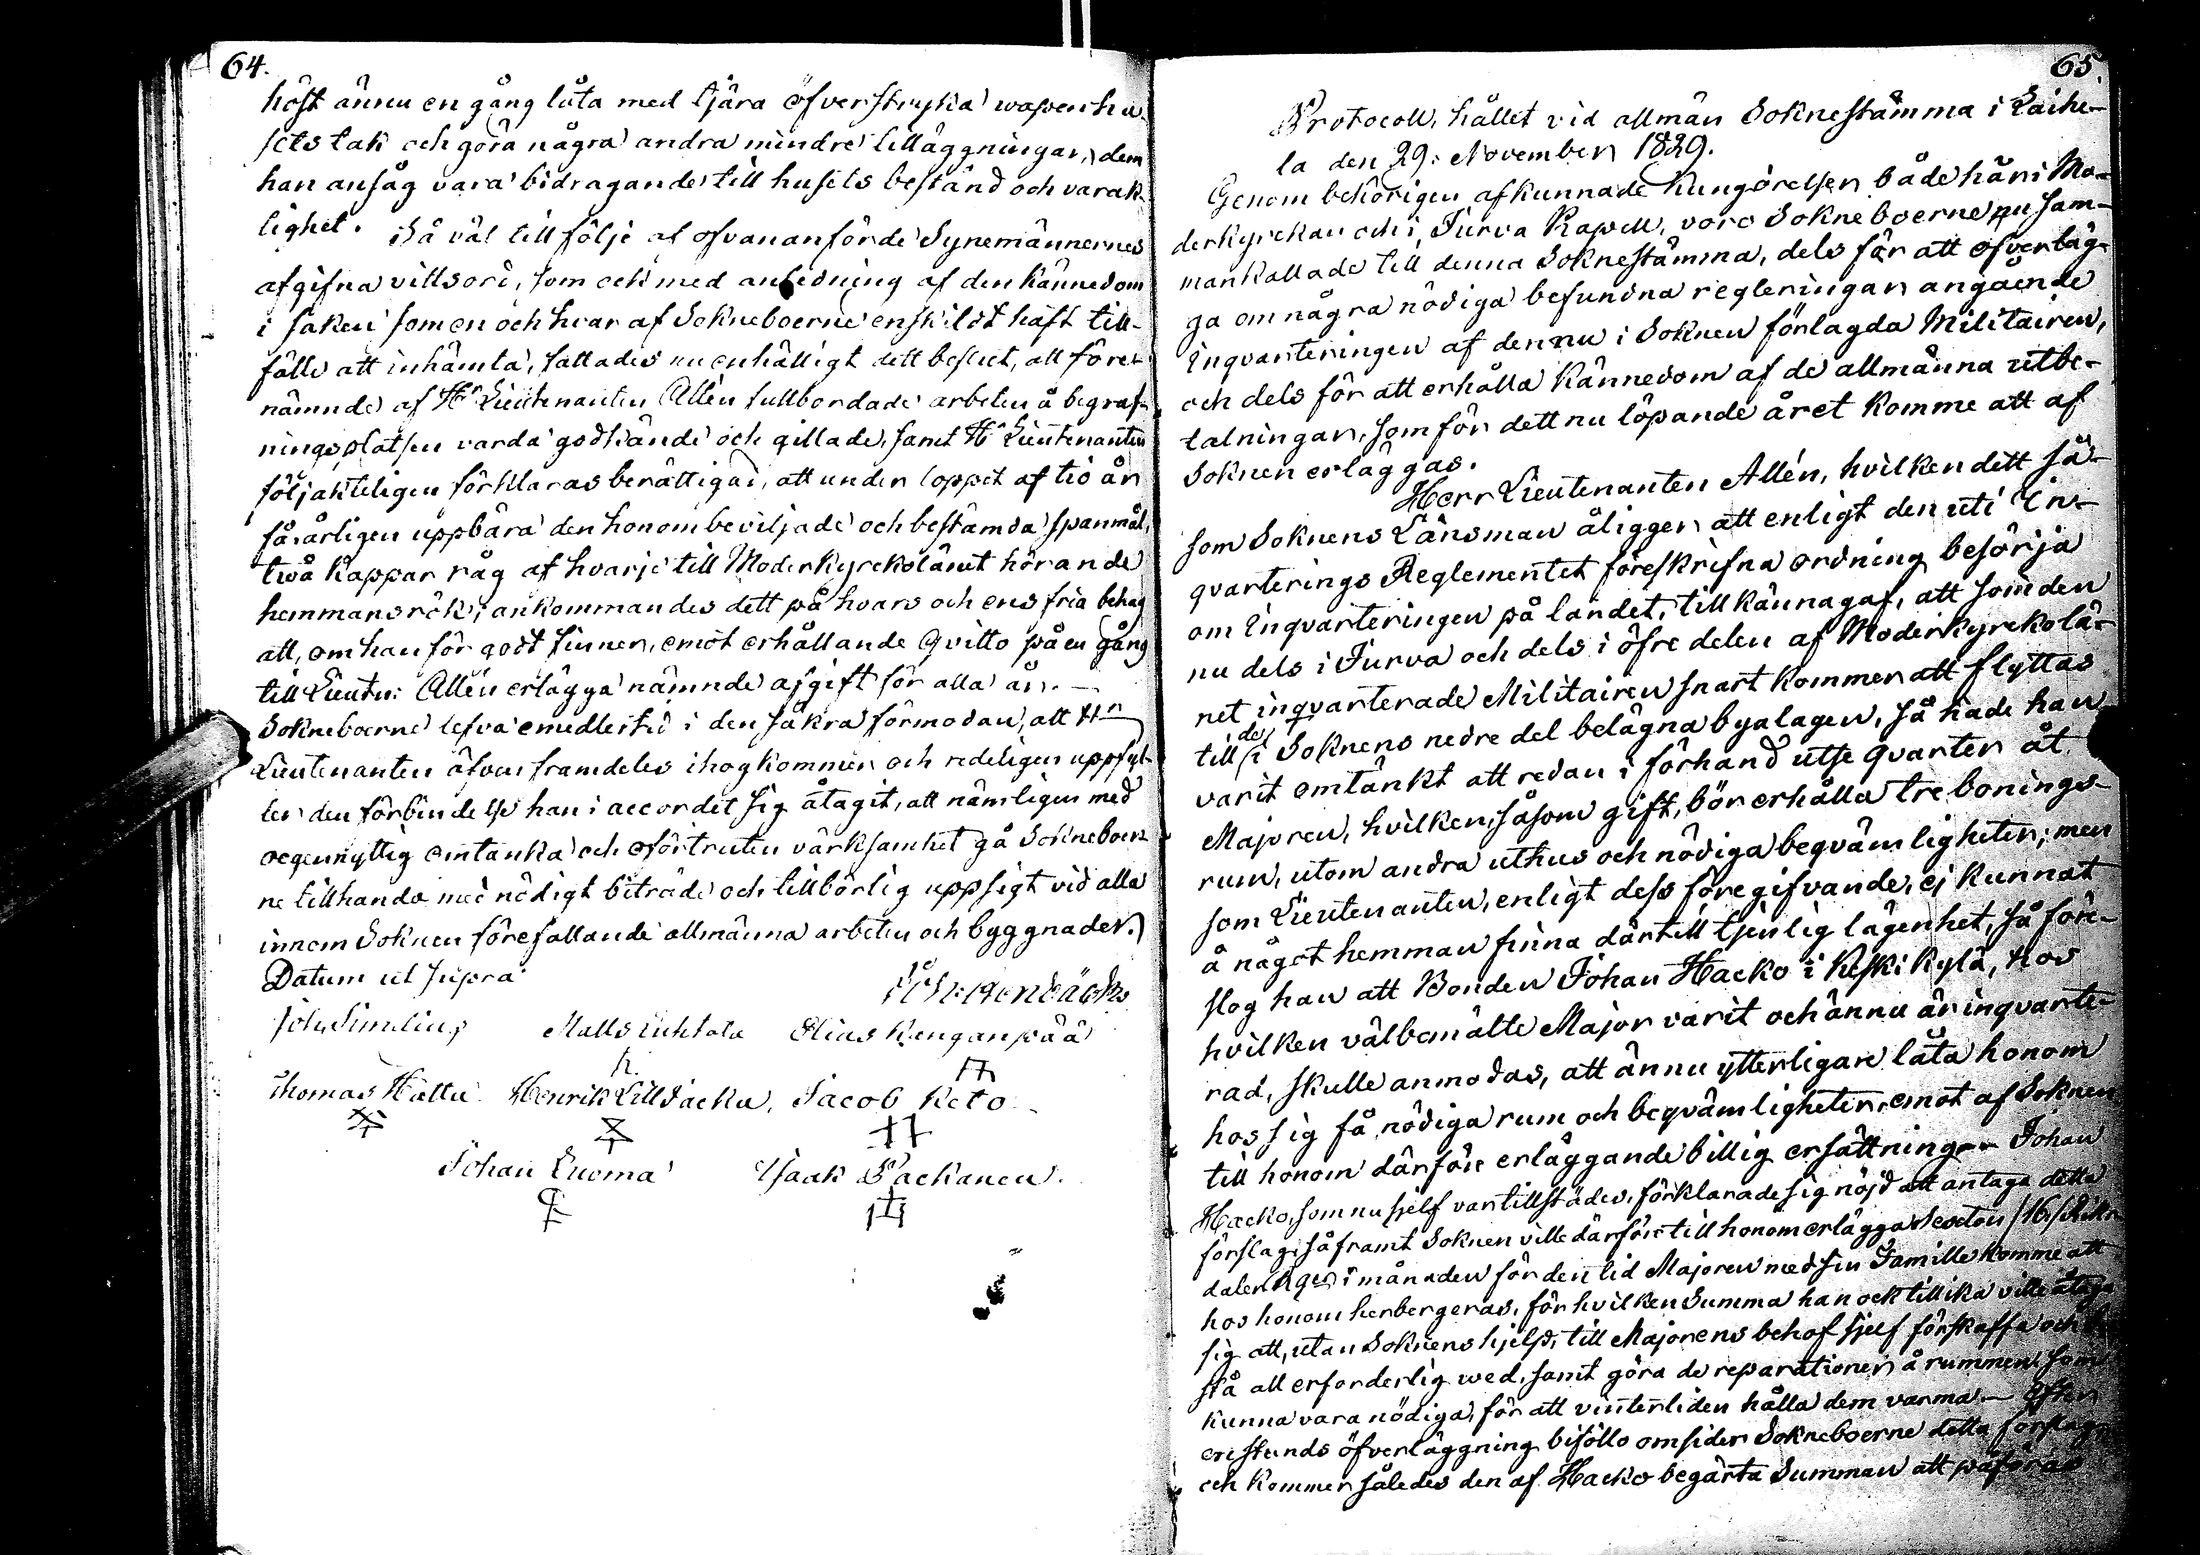 64.
höst ännu en gång låta med tjära öfverstryka wapenhu-
sets tak och göra några andra mindre tilläggningar, dem
han ansåg vara bidragande till husets bestånd och varak-
lighet. Så väl till följe af ofvananförde Synemännernes
afgifna vittsord, som ock med anledning af den kännedom
i saken som en och hvar af Sokneboerne enskildt haft till-
fälle att inhämta, fattades nu enhälligt dett beslut, att före-
nämnde af Hr Lieutenanten Allén fullbordade arbeten å begraf-
ningsplatsen varda godkände och gillade, samt Hr Lieutenanten
följakteligen förklaras berättigad, att under loppet af tio år
få årligen uppbära den honom beviljade och bestämda spanmål,
två kappar råg af hvarje till Moderkyrkolänet hörande
hemmansrök; ankommandes dett på hvars och ens fria behag
att, om han för godt finner, emot erhållande qvitto på en gång
till Lieutn: Allén erlägga nämnde afgift för alla år. —
Sokneboerne lefva emedlertid i den säkra förmodan, att Hr
Lieutenanten äfven framdeles ihogkommer och redeligen uppfyl-
ler den förbindelse han i accordet sig åtagit, att nämligen med
oegennyttig omtanka och oförtruten värksamhet gå Sokneboer-
ne tillhanda med nödigt biträde och tillbörlig uppsigt vid alla
innom Soknen förefallande allmänna arbeten och byggnader.
Datum ut supra
Joh: Simelius Matts Elias Renganpää
Thomas Hattu Henrik Lilljacku, Jacob Keto
Johan Luoma Isaak Packanen.
65.
Protocoll, hållet vid allmän Soknestämma i Laihe-
la den 29: November 1829.
Genom behörigen afkunnade kungörelser både här i Mo-
derkyrckan och i Jurva Kapell, voro Sokneboerne nu sam-
mankallade till denna Soknestämma, dels för att öfverläg-
ga om några nödiga befundna regleringar angående
inqvarteringen af den nu i Soknen förlagda Militairen,
och dels för att erhålla kännedom af de allmänna utbe-
talningar, som för dett nu löpande året komme att af
Soknen erläggas.
Herr Lieutenanten Allén, hvilken dett så-
som Soknens Länsman åligger, att enligt den uti In-
qvarterings Reglementet föreskrifna ordning besörja
om inqvarteringen på landet, tillkännagaf, att som den
nu dels i Jurva och dels i öfre delen af Moderkyrckolä-
net inqvarterade Militairen snart kommer att flyttas
till de i Soknens nedre del belägna byalagen, så hade han
varit omtänkt att redan i förhand utse qvarter åt
Majoren, hvilken, såsom gift, bör erhålla tre bonings-
rum, utom andra uthus och nödiga beqvämligheter; men
som Lieutenanten, enligt dess föregifvande, ej kunnat
å något hemman finna därtill tjenlig lägenhet, så före-
slog han att Bonden Johan Hacko i Keskikylä, hos
hvilken välbemälte Major varit och ännu är inqvarte-
rad, skulle anmodas, att ännu ytterligare låta honom
hos sig få nödiga rum och beqvämligheter, emot af Soknen
till honom därföre erläggande billig ersättning — Johan
Hacko, som nu sjelf var tillstädes, förklarade sig nöjd att antaga detta
förslag, såframt Soknen ville därföre till honom erlägga Sexton /16/ Riks-
daler Rgs i månaden för den tid Majoren med sin Famille komme att
hos honom herbergeras, för hvilken Summa han ock tillika ville åtaga
sig att, utan Soknens hjelp, till Majorens behof sjelf förskaffa och be-
stå all erforderlig wed, samt göra de reparationer å rummen, som
kunna vara nödiga, för att vintertiden hålla dem varma. — Efter
en stunds öfverläggning biföllo omsider Sokneboerne detta förslag,
och kommer således den af Hacko begärta Summan att påföras